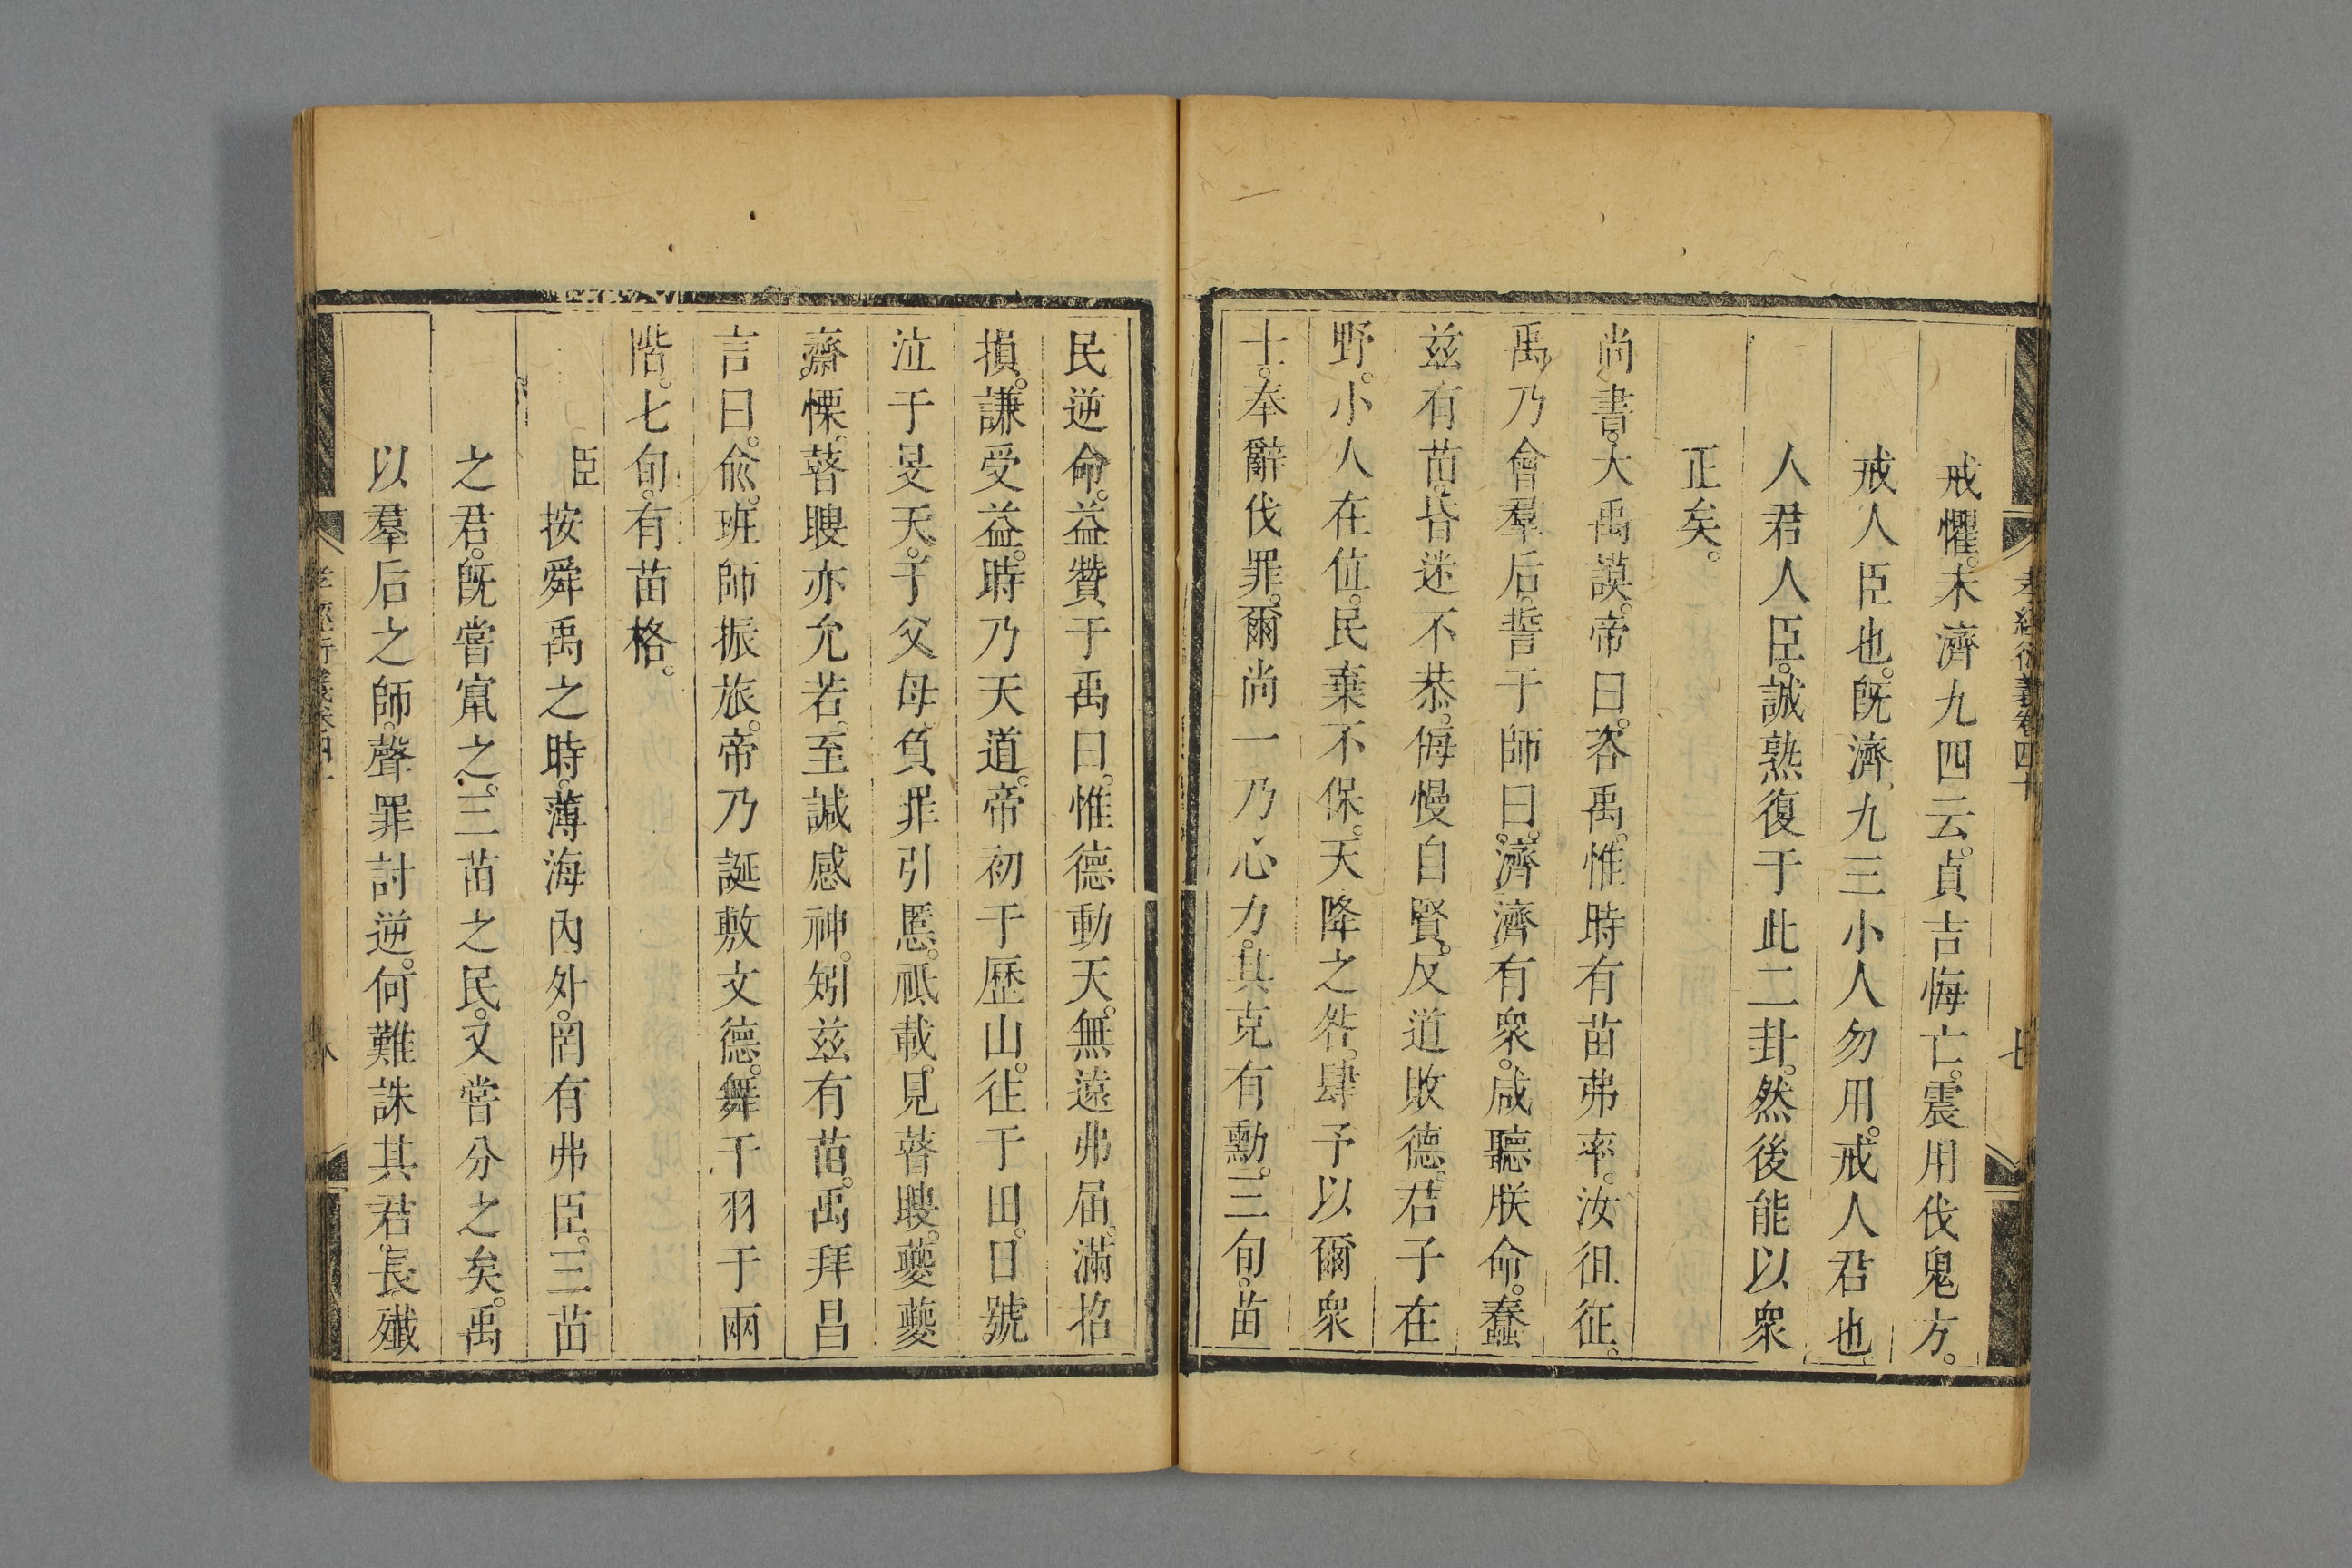 孝經衍義卷四十
七
戒懼。未濟九四云。貞吉悔亡。震用伐鬼方。
戒人臣也。旣濟九三小人勿用。戒人君也。
人君人臣。誠熟復于此二卦。然後能以衆
正矣。
尚書。大禹謨。帝曰。咨禹。惟時有苗弗率。汝徂征。
禹乃會羣后。誓于師曰。濟濟有衆。咸聽朕命。蠢
玆有苗。昏迷不恭。侮慢自賢。反道敗德。君子在
野。小人在位。民棄不保。天降之咎。肆予以爾衆
士。奉辭伐罪。爾尚一乃心力。其克有勳。三旬。苗
民逆命。益贊于禹曰。惟德動天。無遠弗届。滿招
損。謙受益。時乃天道。帝初于歷山。往于田。日號
泣于旻天。于父母。負罪引慝。祗載。見瞽瞍。夔夔
齋慄。瞽瞍亦允若。至諴感神。矧玆有苗。禹拜昌
言曰。俞。班師振旅。帝乃誕敷文德。舞干羽于兩
階。七旬。有苗格。
臣按舜禹之時。薄海內外。罔有弗臣。三苗
之君。旣嘗竄之。三苗之民。又嘗分之矣。禹
以羣后之師。聲罪討逆。何難誅其君長。殲
孝經衍義卷四十
八